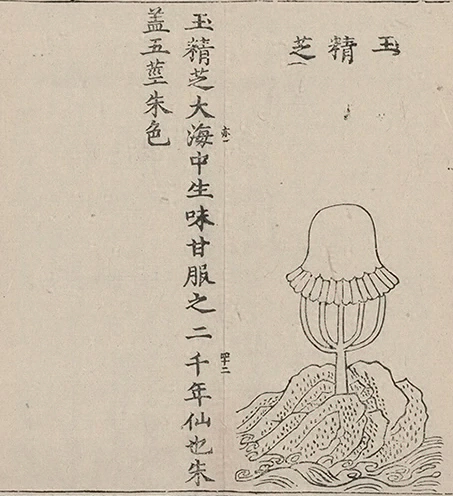 玉精芝
玉精芝大海中生味甘服之二千年仙也朱
盖五莖朱色